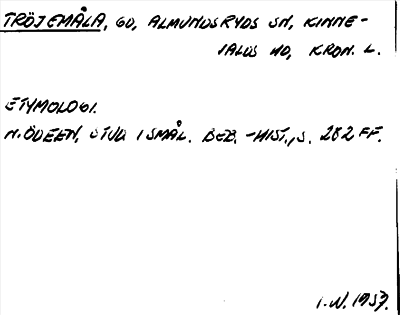 TRÖJEMÅLA, GD, ALMUNDSRYDS SN, KINNE-
VALDS HD, KRON. L.
ETYMOLOGI.
N. ÖDEEN, STUD I SMÅL. BEB.-HIST., S. 282 FF.
I.W. 1957.